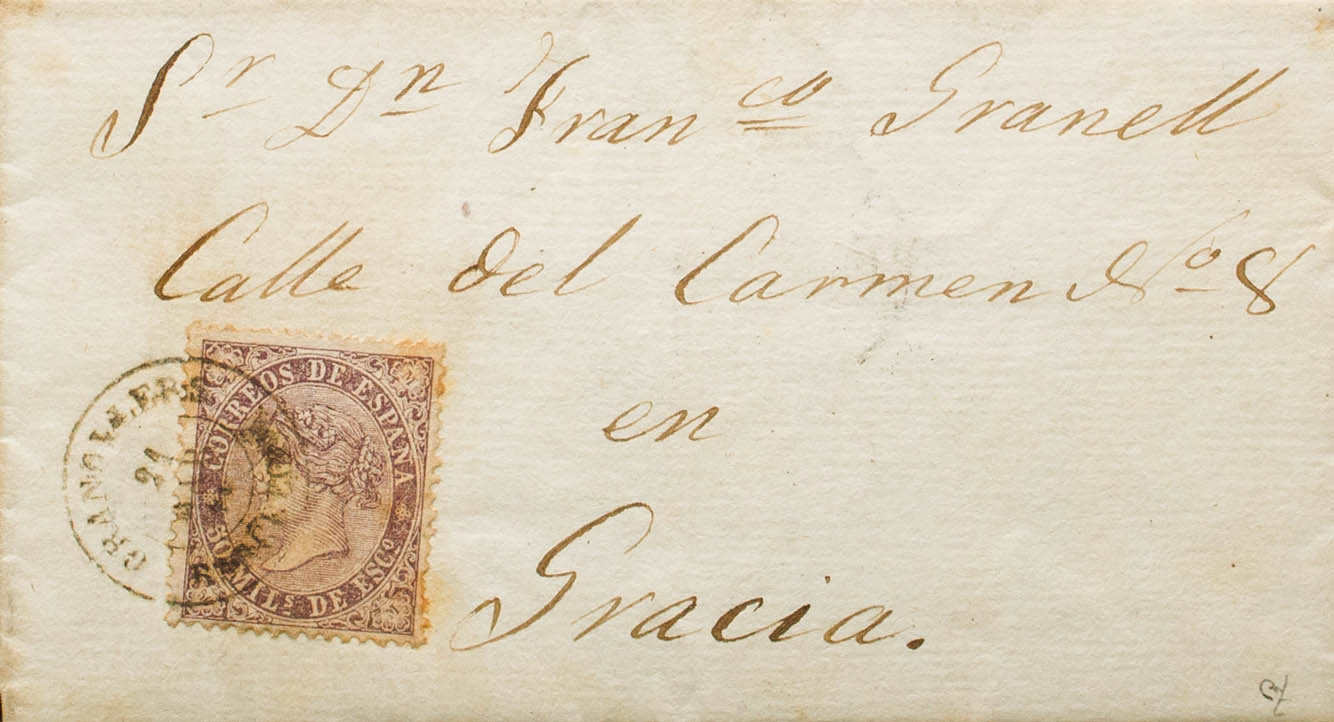 Sr Dn Franco Granell
Calle del Carmen No 8
en
Gracia.
CORREOS DE ESPAÑA
50 MILs DE ESCo
GRANOLLERS
21
BARCELONA